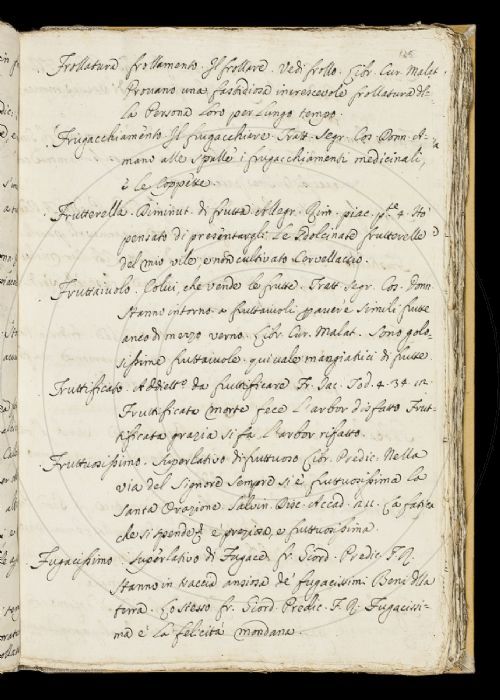 Frollatura. frollamento. Il frollare. Vedi frollo. Libr. Cur. Malat.
Provano una fastidiosa increscevole frollatura del
la Persona loro per lungo tempo.
Frugacchiamento. Il frugacchiare. Tratt. Segr. Cos. Donn. A-
mano alle spalle i frugacchiamenti medicinali,
e le coppette.
Frutterella. Diminut. di frutta. Allegr. Rim. piac. p.te 4. Ho
pensato di presentargli le sdolcinate frutterelle
del mio vile e non cultivato Cervellaccio.
Fruttaiuolo. Colui, che vende le frutte. Tratt. Segr. Cos. Donn.
Stanno intorno a fruttaiuoli simili frutte
anco di mezzo verno. Libr. Cur. Malat. Sono golo-
sissime fruttaiuole. qui vale mangiatrici di frutte.
Fruttificato. Addiett.o da fruttificare. Fr. Jac. Tod. 4. 34. 12.
Fruttificato morte fece l'arbor disfatto Frut-
tificata grazia si fa l'arbor rifatto.
Fruttuosissimo. Superlativo di fruttuoso. Libr. Predic. Nella
via del Signore sempre si è fruttuosissima la
Santa Orazione. Salvin. Disc. Accad. La fatica
che si spende è preziosa, e fruttuosissima.
Fugacissimo. Superlativo di Fugace. Fr. Giord. Predic. F. R.
Stanno in traccia ansiosa de' fugacissimi Beni della
terra. Lo stesso Fr. Giord. Predic. F. R. Fugacissi-
ma è la felicità mondana.